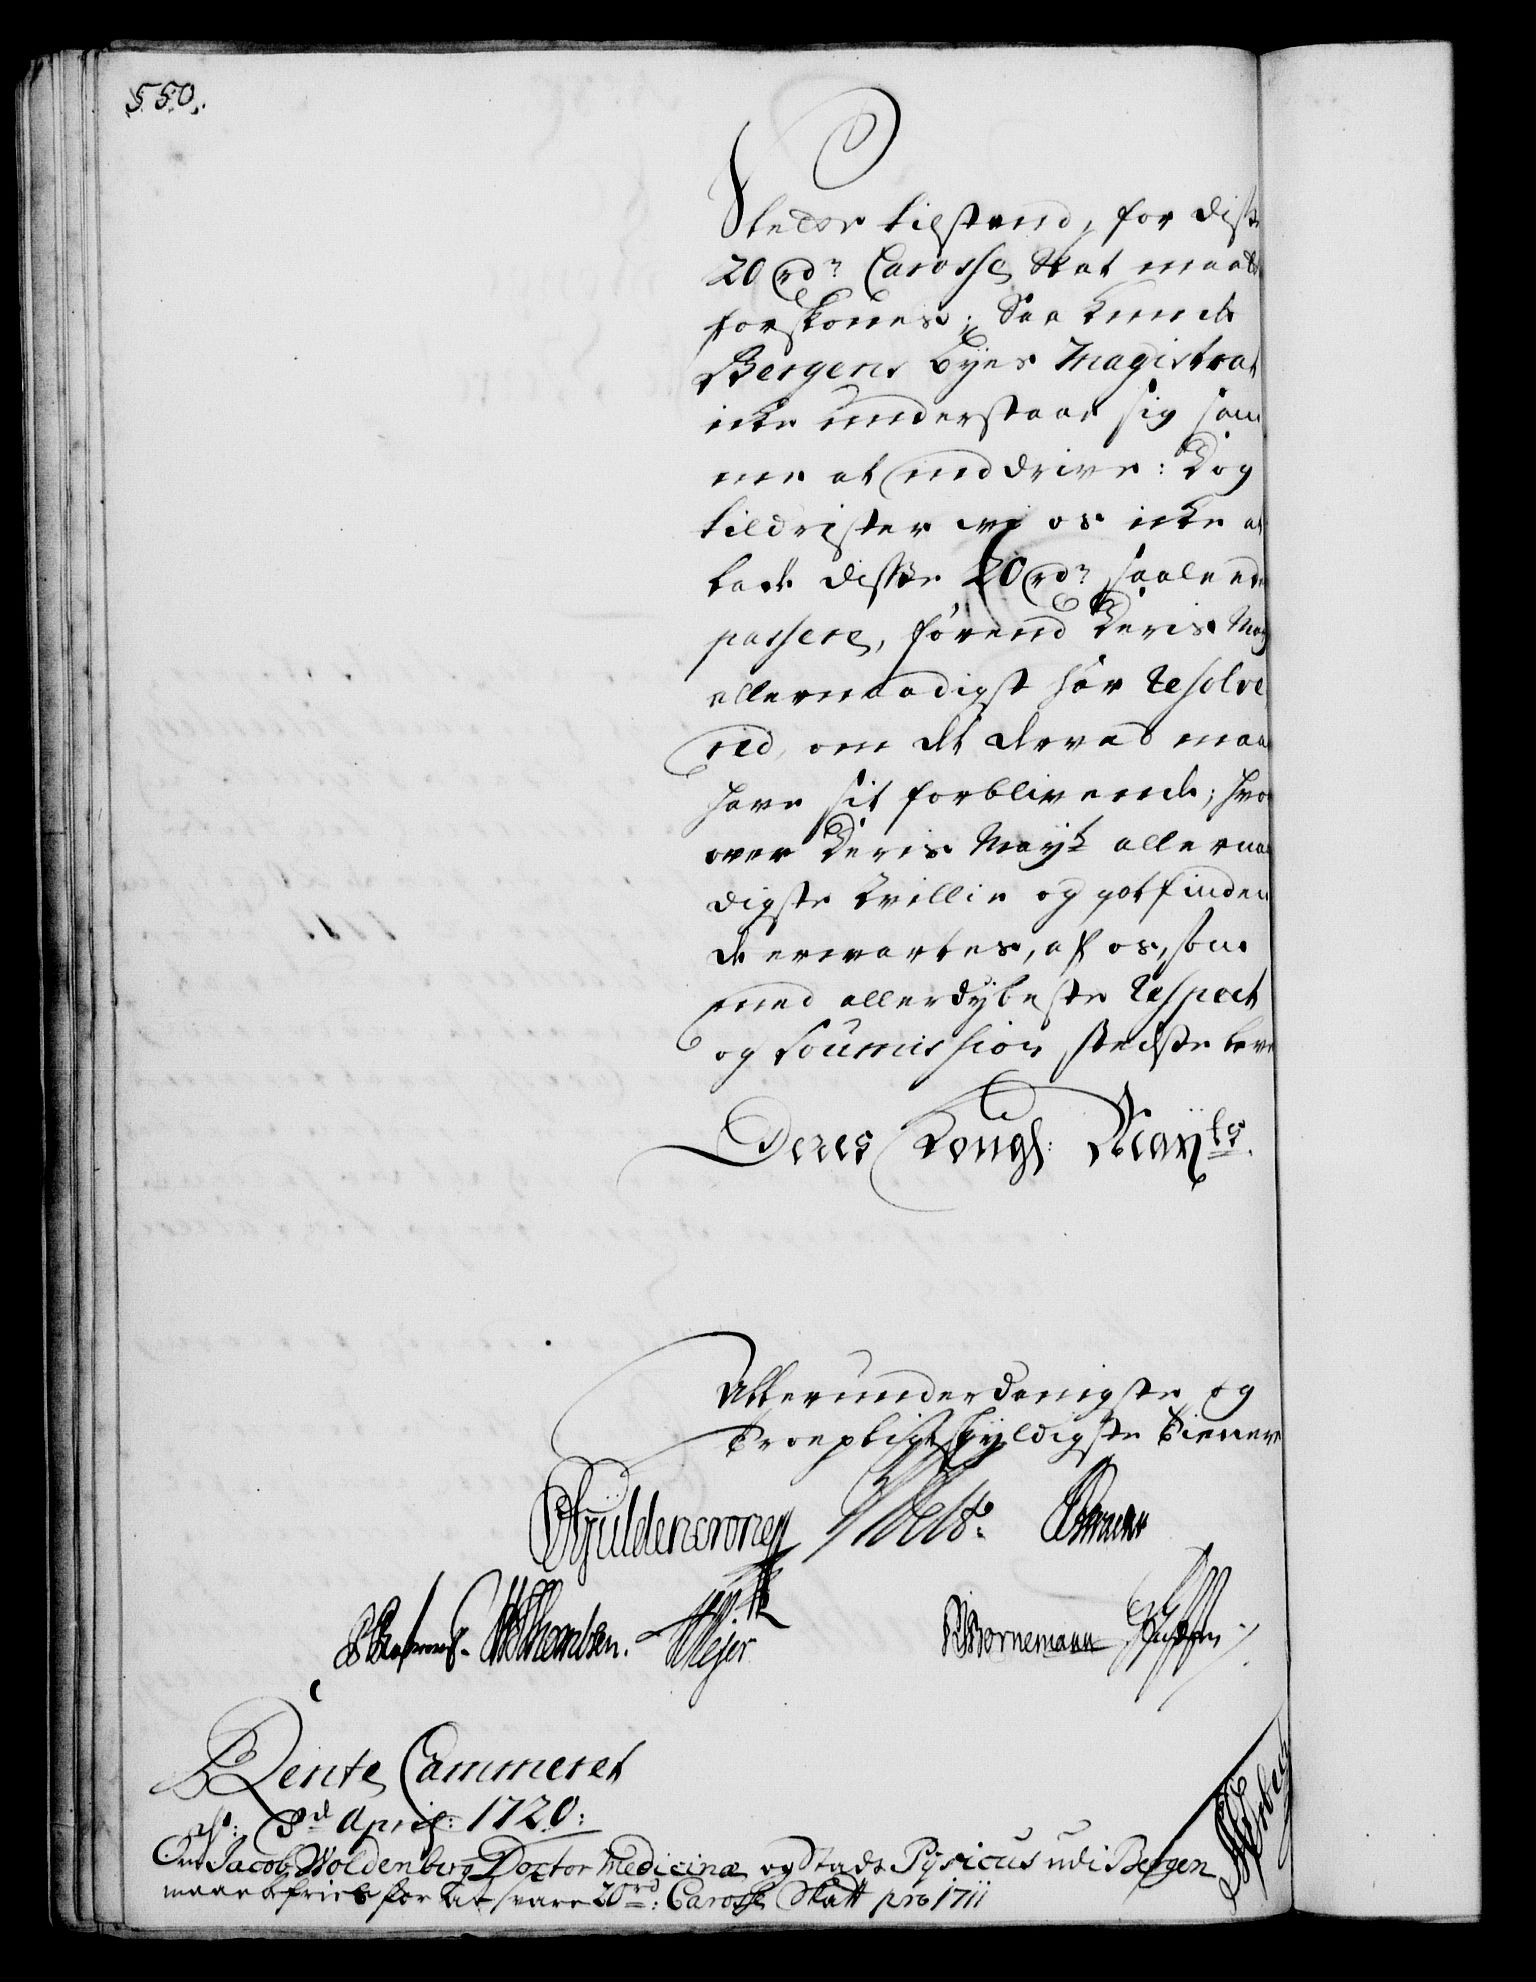 550.
slette tilstand, for disse
20 rd. Carosse Skat maatte
forskones; Saa kunde
Bergens Byes Magistrat
icke understaae sig sam
me at inddrive: Dog
tildrister vi os icke at
lade disse 20 rd. saaleedes
passere, førend Deris May
allernaadigst har Resolve
red, om det derved maa
have sit forblivende; hvor
over Deris Mayts allernaa
digste Villie og gotfinden
de ervartes, af os, som
med allerdybeste Respect
og Soumission stedse leve
Deres Kongl: Mayts.
Allerunderdanigste og
troepligtskyldigste Tienere
Güldencrone
WThomsen. Meyer BBornemann
Rente Cammeret
d: 3d April: 1720:
Om Jacob Woldenberg Doctor Medicinæ og Stads Pysicus udi Bergen
maae befries for at svare 20 rd: Carosse Skatt pro 1711